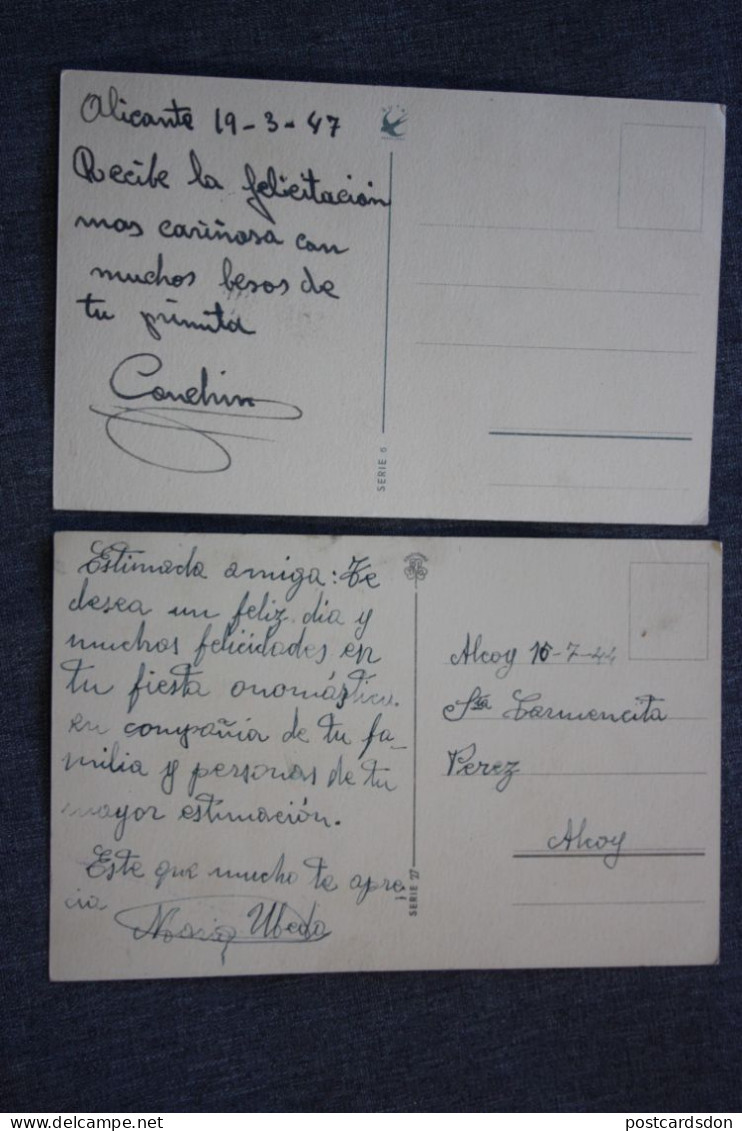 Alicante 19-3-47
Recibe la felicitación
mas cariñosa con
muchos besos de
tu primita
Conchin
SERIE
Estimada amiga: Te
desea un feliz dia y
muchos felicidades en
tu fiesta onomástica.
en compañia de tu fa-
milia y personas de tu
mayor estimación.
Este que mucho te apre-
cia
Ubeda
SERIE 27
Alcoy 15-7-44
Sta Carmencita
Perez
Alcoy
delcampe.net
postcardsdon